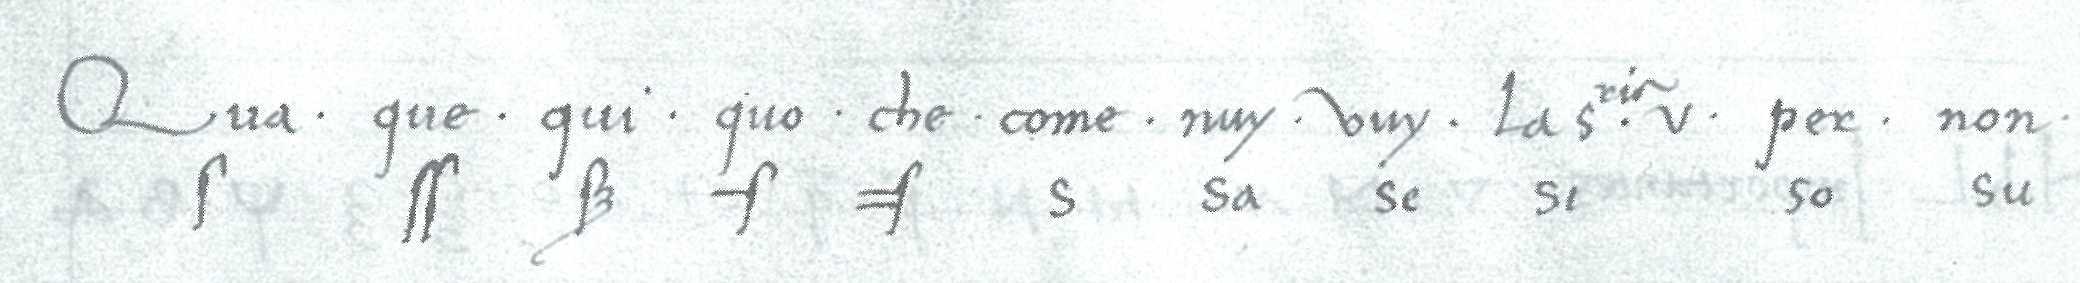 Qua · que · qui · quo · che · come · nuy · vuy · La s.ria v · per · non ·
ſ ſſ ß s sa se si so su